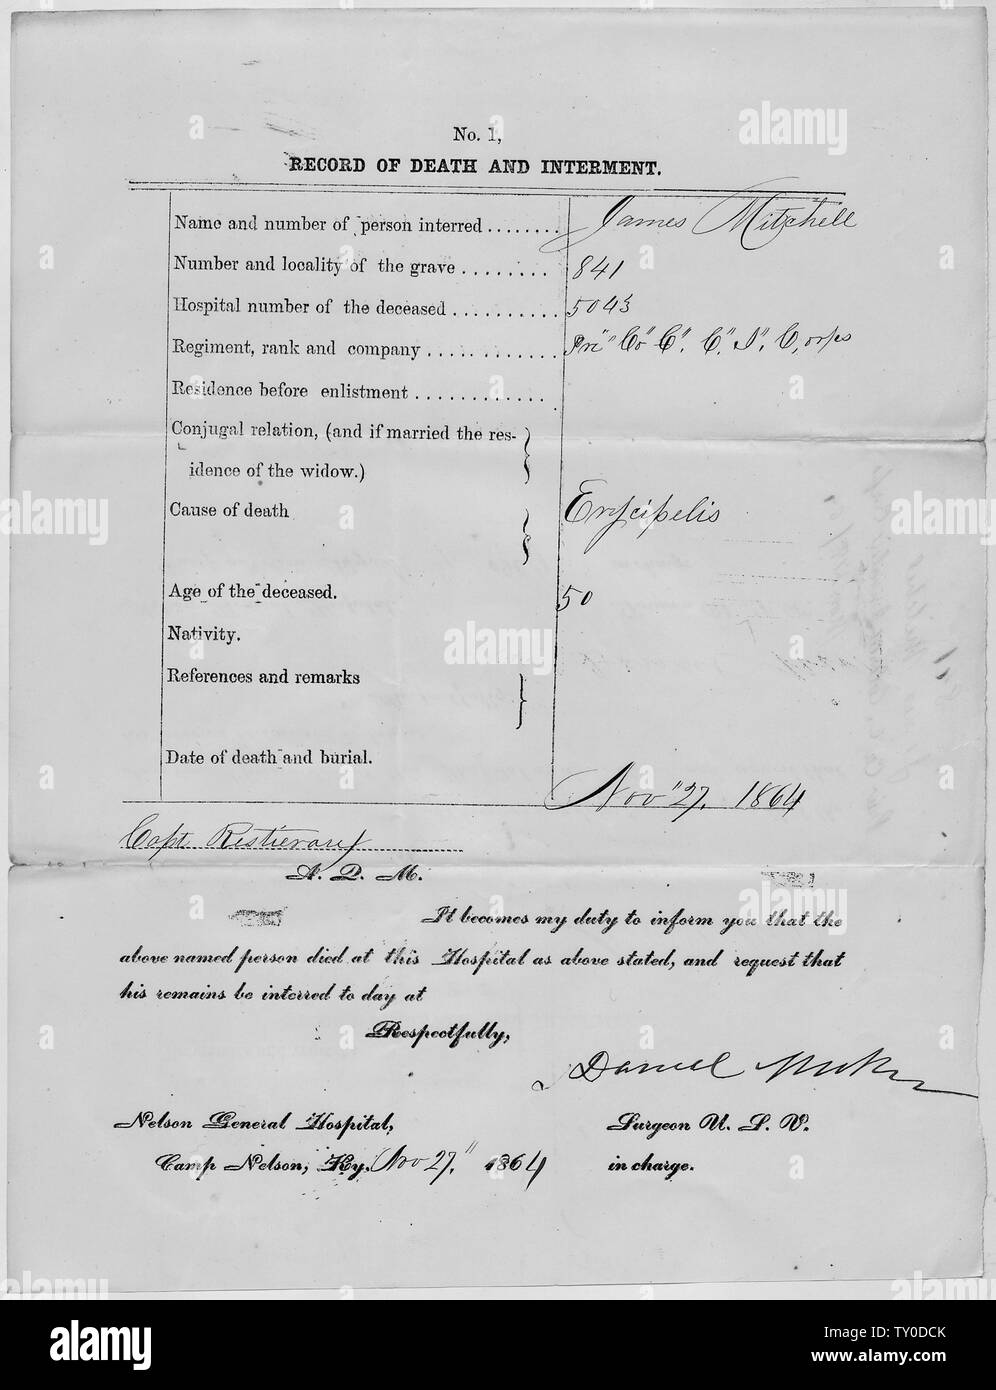 No. 1,
RECORD OF DEATH AND INTERMENT.
Name and number of person interred ........ James Mitchell
Number and locality of the grave ........ 841
Hospital number of the deceased .......... 5043
Regiment, rank and company ............. Pri" Co" C". C". I". Corps
Residence before enlistment .............
Conjugal relation, (and if married the res-
idence of the widow.)
Cause of death Erycipelis
Age of the deceased. 50
Nativity.
References and remarks
Date of death and burial.
Nov" 27. 1864
Capt
A. Q. M.
It becomes my duty to inform you that the
above named person died at this Hospital as above stated, and request that
his remains be interred to day at
Respectfully,
Daniel
Nelson General Hospital, Surgeon U. S. V.
Camp Nelson, Ky, Nov 27." 1864 in charge.
alamy
Image ID: TY0DCK
www.alamy.com